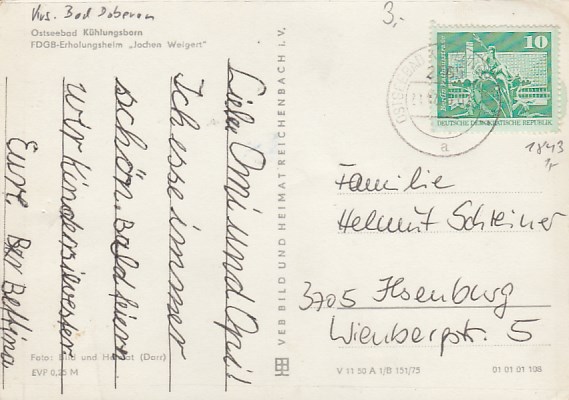 Krs. Bad Doberan
Ostseebad Kühlungsborn
FDGB-Erholungsheim „Jochen Weigert"
Liebe Omi und Opi!
Ich esse immer
schön. Bald feiern
wir Kindersilvester.
Eure Ber Bettina
Foto: Bild und Heimat (Darr)
EVP 0,25 M
VEB BILD UND HEIMAT REICHENBACH i. V.
3,-
10
Berlin, Rathausstraße
DEUTSCHE DEMOKRATISCHE REPUBLIK
OSTSEEBAD
a
1843
1,-
Familie
Helmut Schreiner
3705 Ilsenburg
Wienbergstr. 5
V 11 50 A 1/B 151/75
01 01 01 108